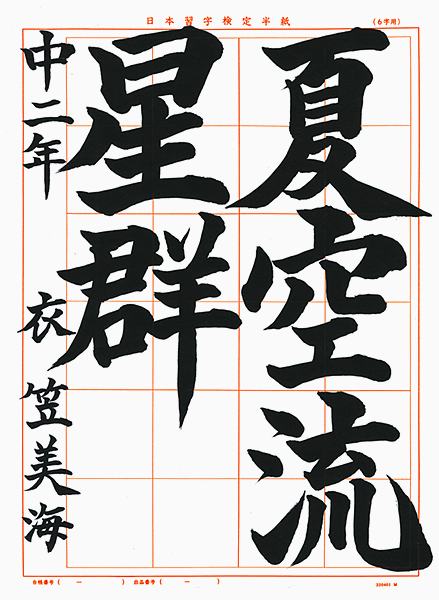 日本習字検定半紙
(6字用)
夏空流
星群
中二年 衣笠美海
自帳番号 ( ー ) 出品番号 ( ー )
220401 M